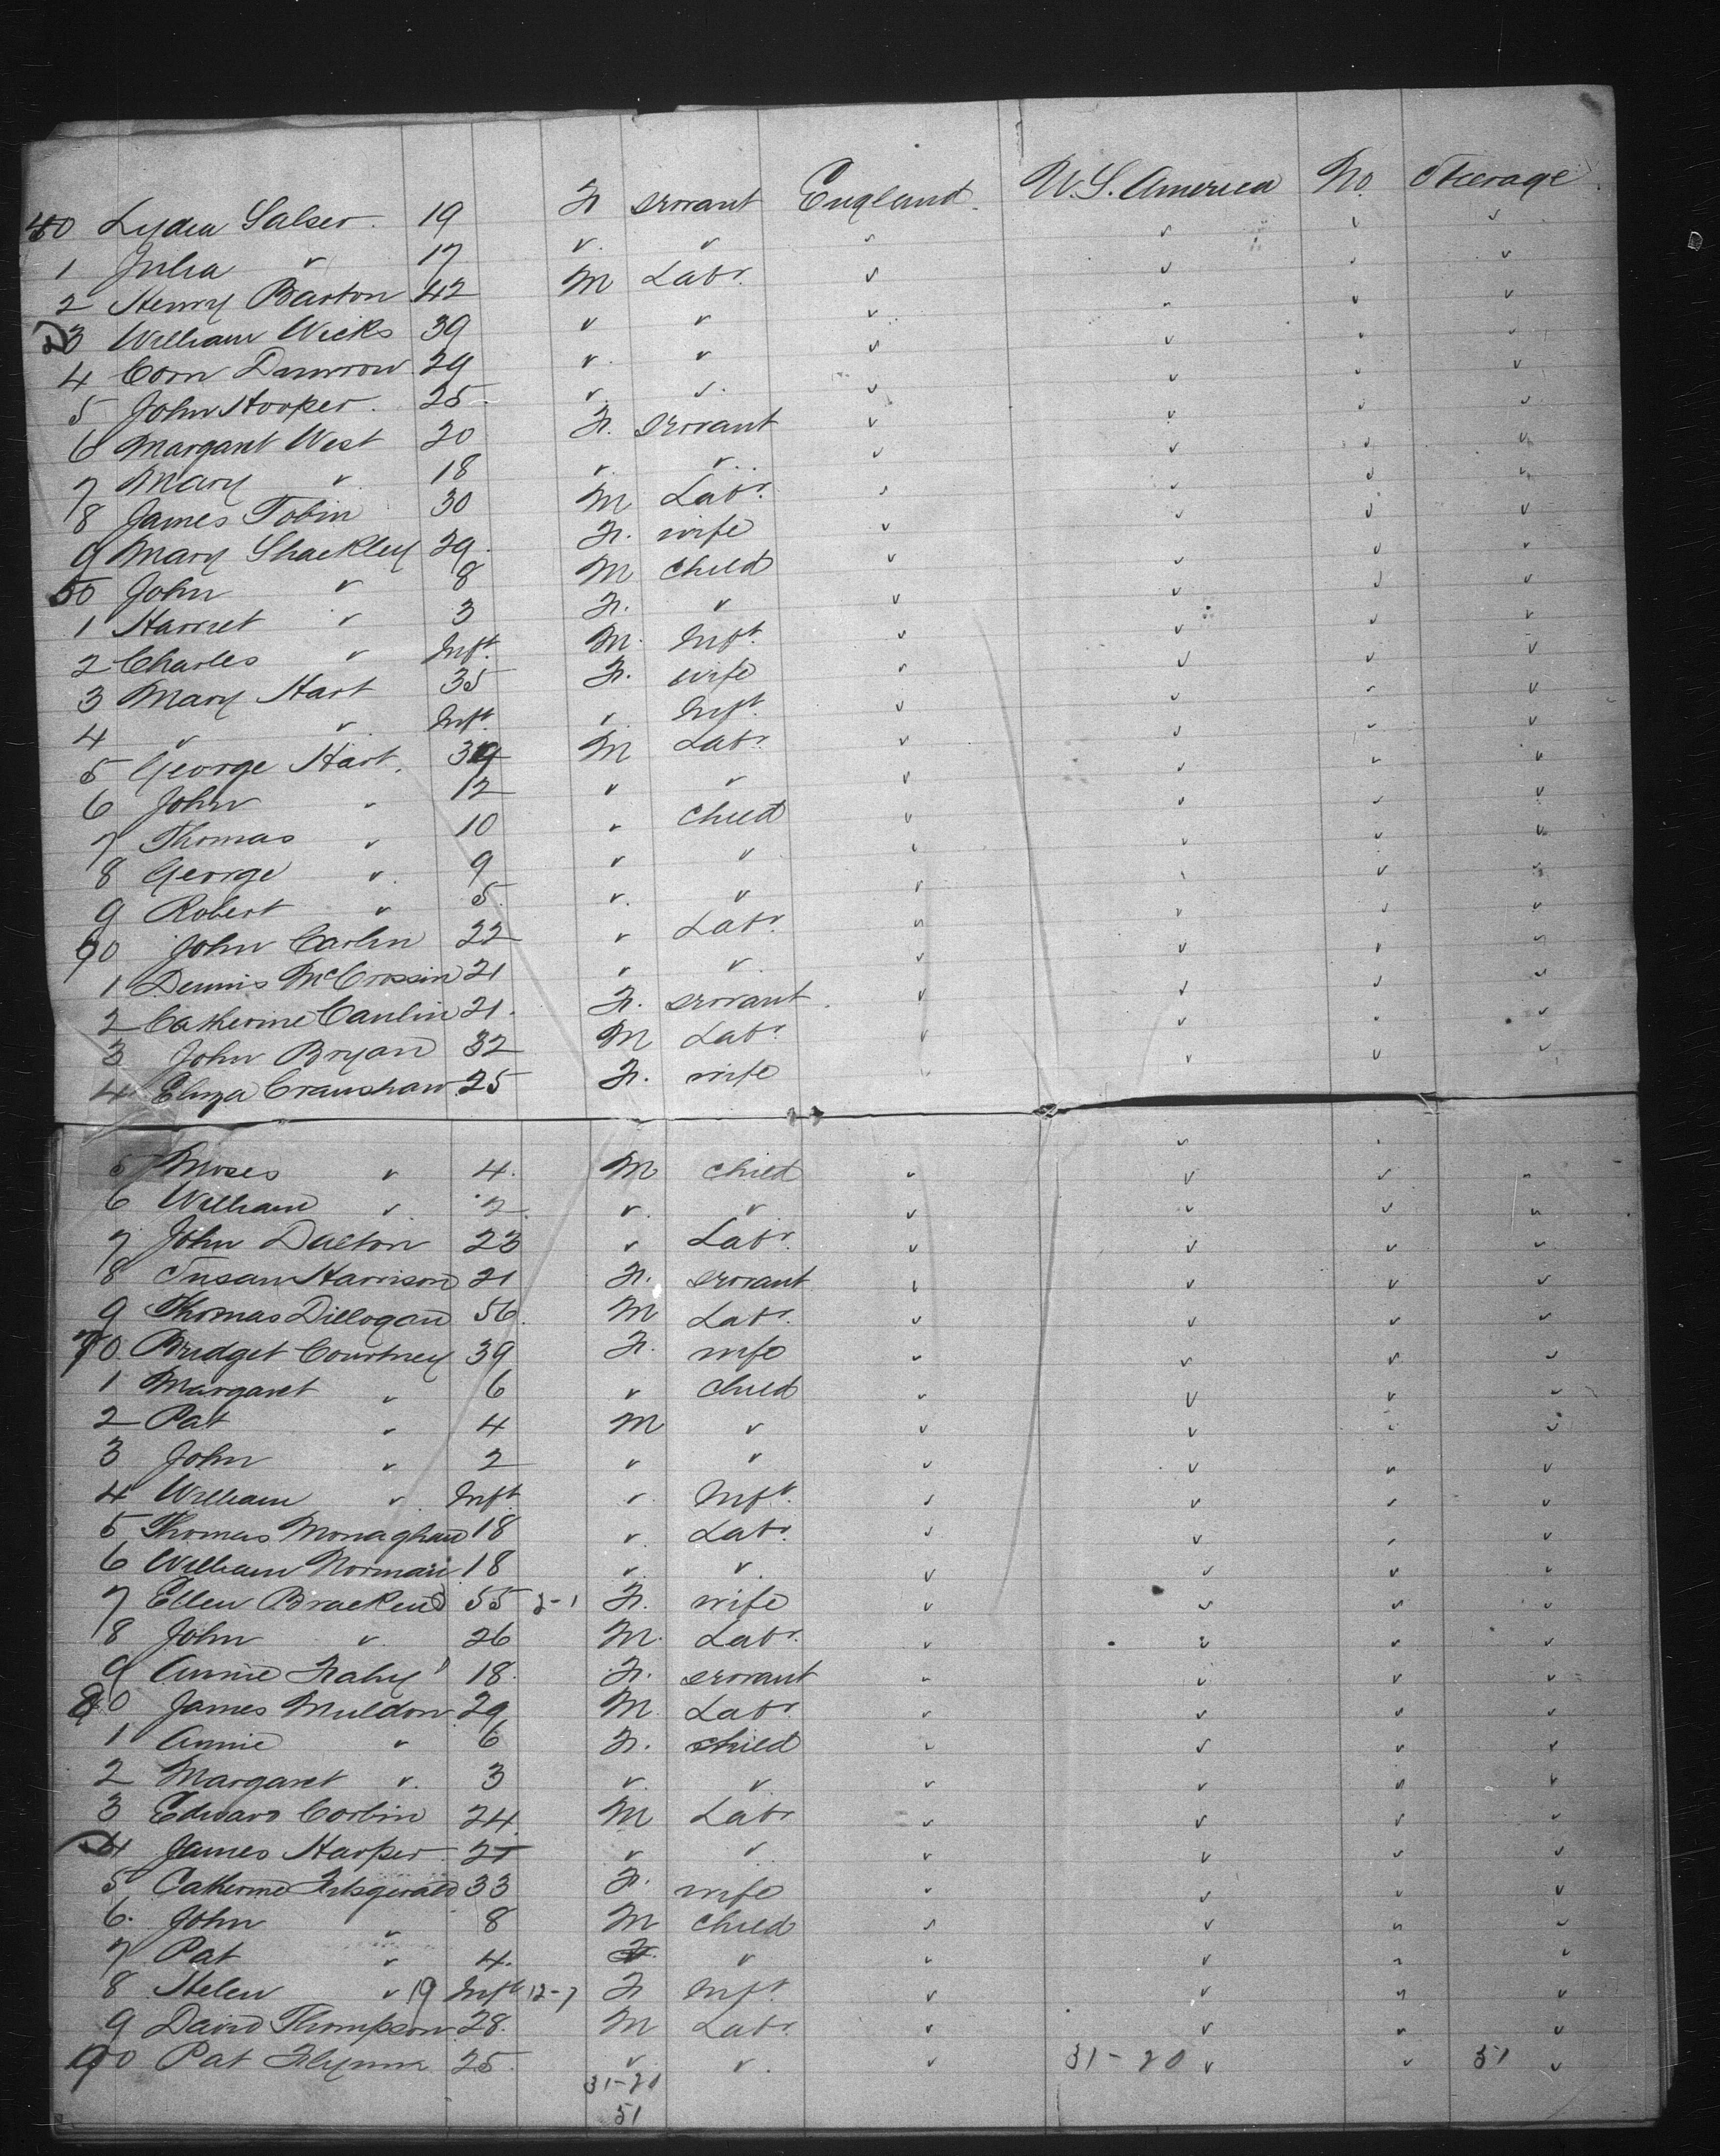 40 Lydia Salser. 19 F servant England U.S. America No Steerage
1 Julia " 17 " " " " " "
2 Henry Barton 42 M Labr. " " " "
3 William Wicks 39 " " " " " "
4 Corn 29 " " " " " "
5 John Hooper. 25. " " " " " "
6 Margaret West 20 F. servant " " " "
7 Mary " 18 " " " " " "
8 James Tobin 30 M Labr. " " " "
9 Mary Shackley 29. F. wife " " " "
50 John " 8 M child " " " "
1 Harriet " 3 F. " " " " "
2 Charles " Inft. M. Inft. " " " "
3 Mary Hart 35 F. wife " " " "
4 " " Inft. " Inft. " " " "
5 George Hart. 39 M Labr. " " " "
6 John " 12 " " " " " "
7 Thomas " 10 " child " " " "
8 George " 9 " " " " " "
9 Robert " 5. " " " " " "
60 John Carlin 22 " Labr. " " " "
1 Dennis McCrossin 21 " " " " " "
2 Catherine Caulin 21. F. servant. " " " "
3 John Bryan 32 M Labr. " " " "
4 Eliza Cranshaw 25 F. wife " " " "
5 Moses " 4. M child " " " "
6 William " 2. " " " " " "
7 John Dalton 23 " Labr. " " " "
8 Susan Harrison 21 F. servant " " " "
9 Thomas Dillogan 56. M Labr. " " " "
70 Bridget Courtney 39 F. wife " " " "
1 Margaret " 6 " child " " " "
2 Pat " 4 M " " " " "
3 John " 2 " " " " " "
4 William " Inft " Inft. " " " "
5 Thomas Monaghan 18 " Labr. " " " "
6 William Norman 18 " " " " " "
7 Ellen Bracken 55 2-1 F. wife " " " "
8 John " 26 M. Labr. " " " "
9 Annie Fahy 18. F. servant " " " "
80 James Muldon 29 M Labr. " " " "
1 Annie " 6 F. child " " " "
2 Margaret " 3 " " " " " "
3 Edward Corbin 24 M Labr " " " "
4 James Harper 21 " " " " " "
5 Catherine Fitsgerald 33 F. wife " " " "
6. John " 8 M child " " " "
7 Pat " 4. " " " " "
8 Helen " 19 Inft 12-7 F Inft. " " " "
9 David Thompson 28. M Labr. " " " "
90 Pat Flynn 25. " " " 31-20 " " 51 "
31-20
51